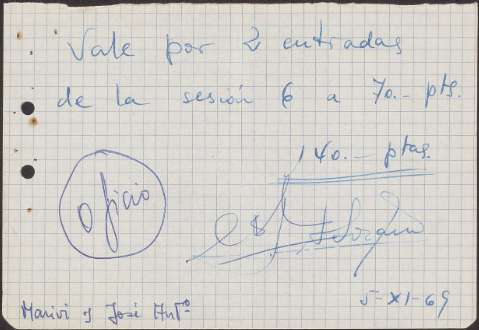 Vale por 2 entradas
de la sesión 6 a 70.- pts.
140.- ptas.
Oficio
Marivi y José Antº
5-XI-69